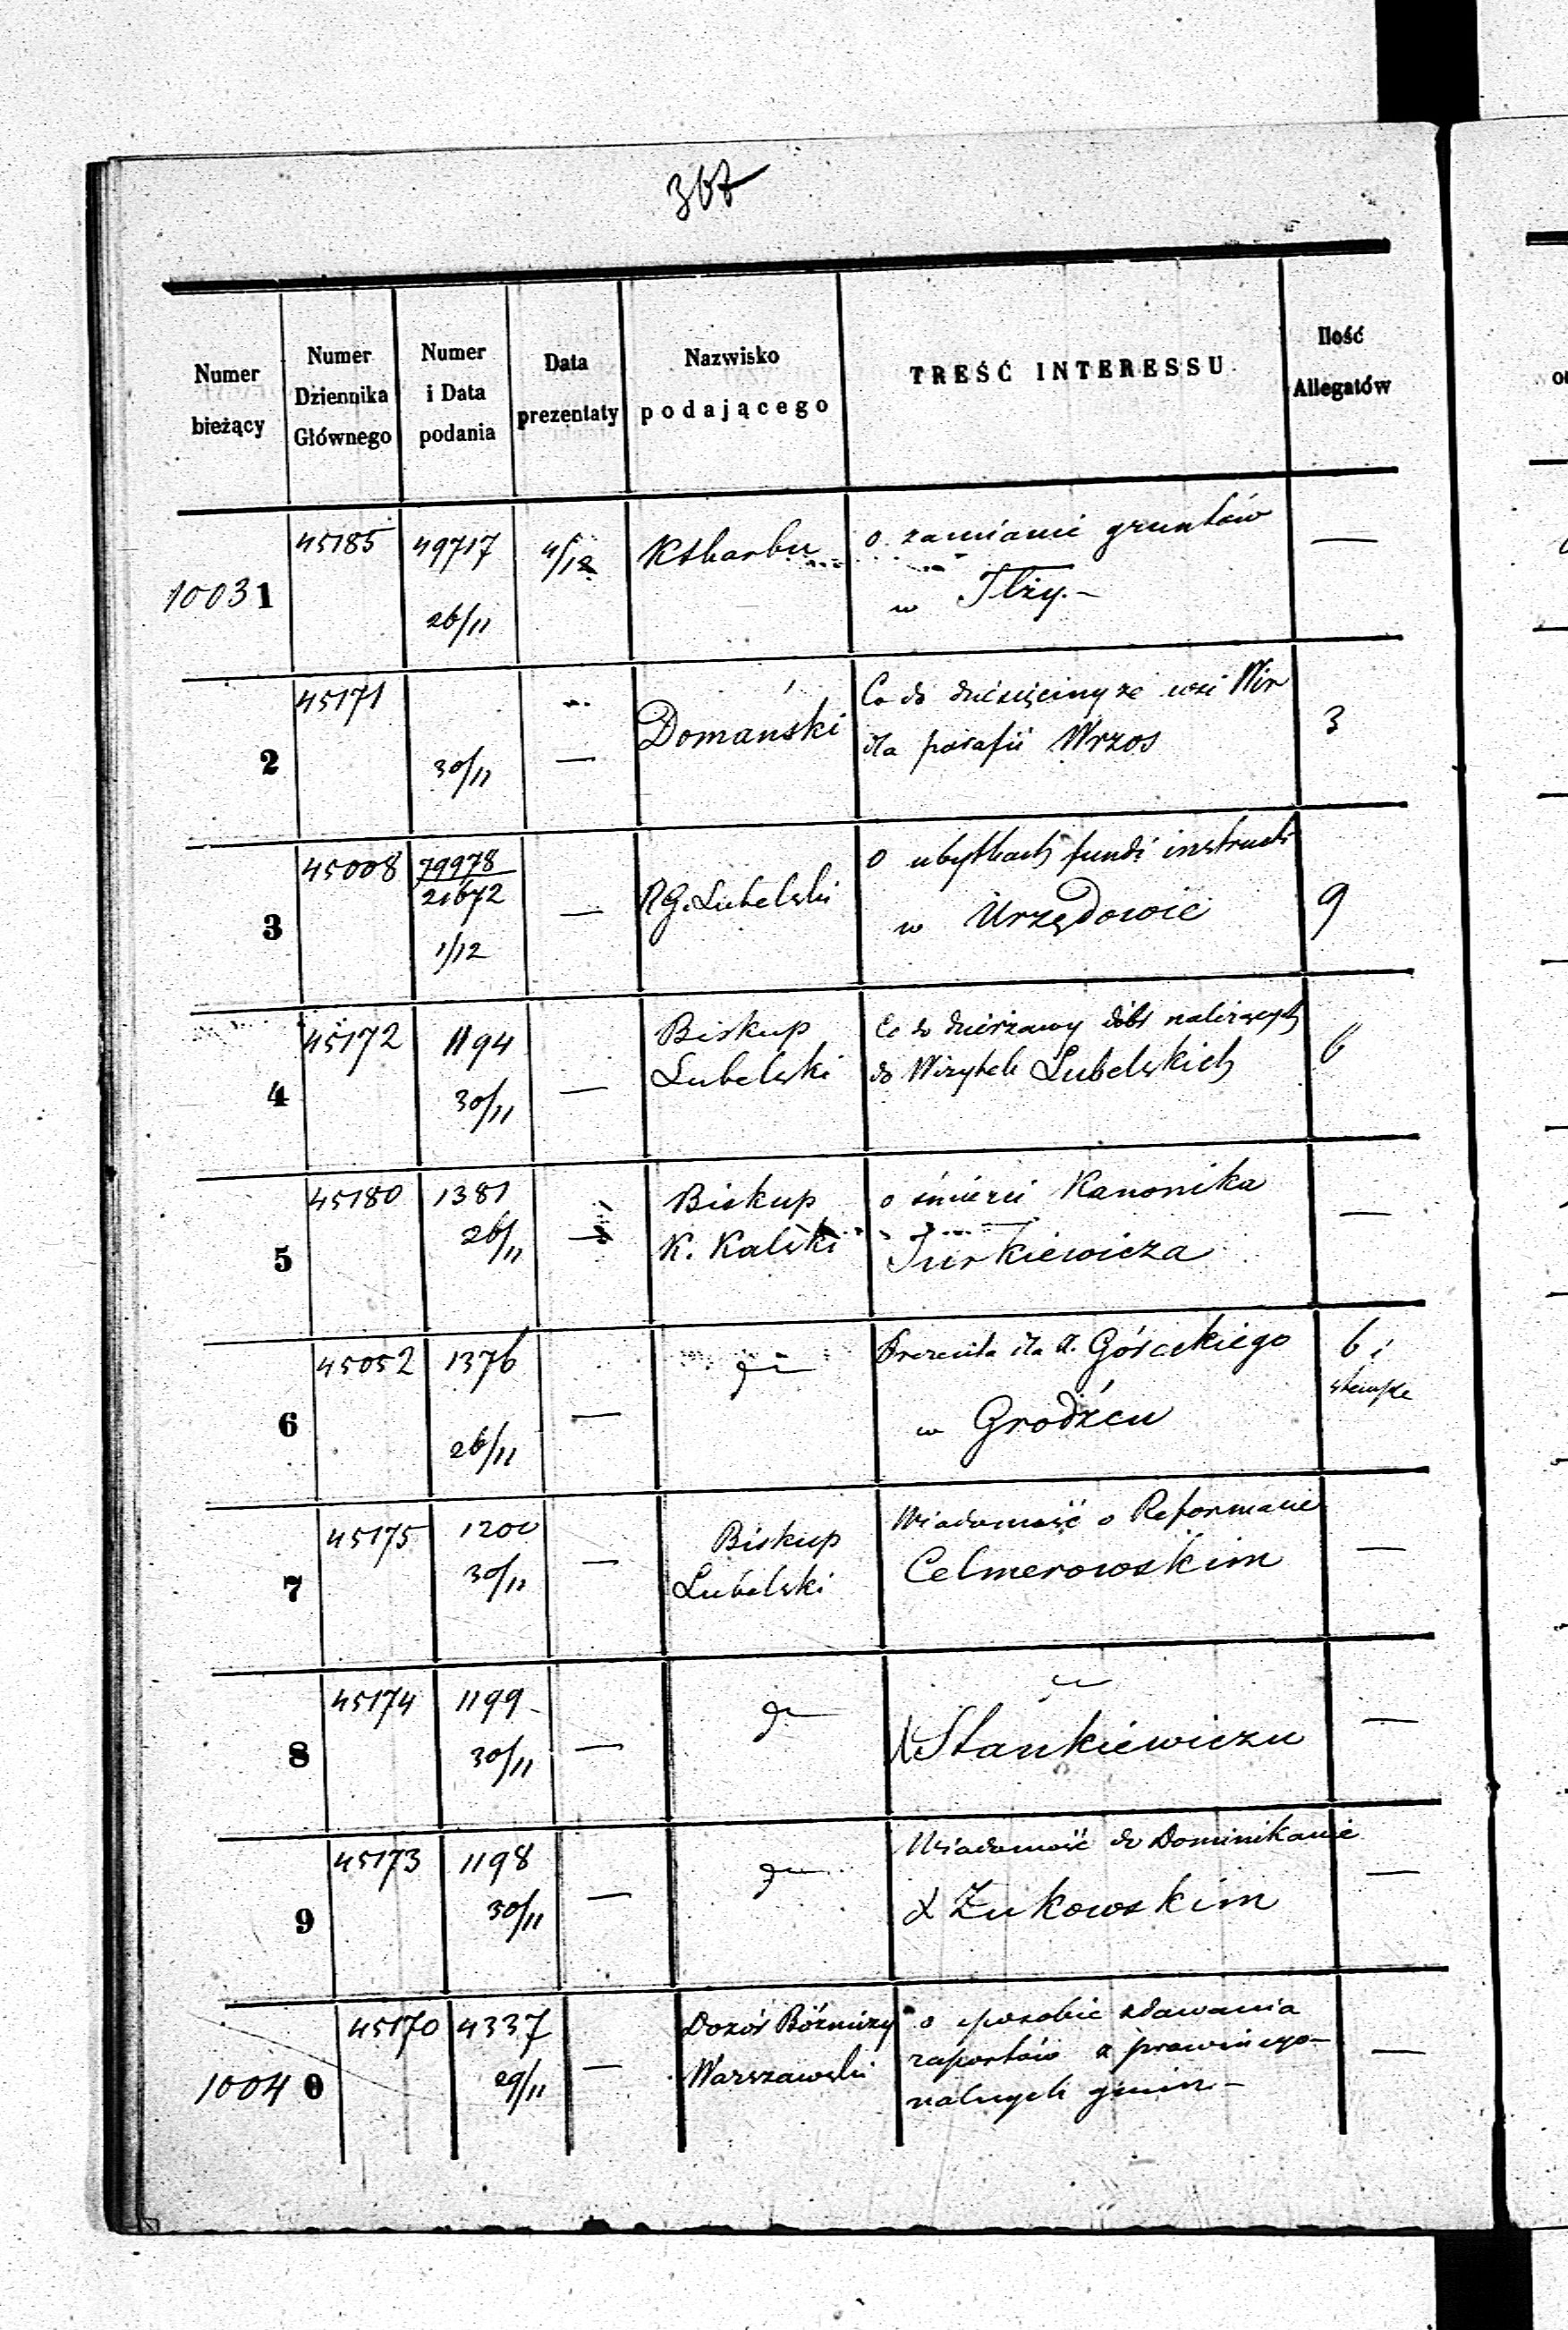 367
Numer bieżący
Numer Dziennika Głównego
Numer i Data podania
Data prezentaty
Nazwisko podającego
TREŚĆ INTERESSU
Ilość Allegatów
10031 45185 49717 26/11 4/12 KSkarbu o zamianie gruntów —
w Iłży.—
2 45171 30/11 — Domański Co do dziesięciny ze wsi Wir 3
dla parafii Wrzos
3 45008 79978 21672 1/12 — RG. Lubelski o ubytkach fundi instructi 9
w Urzędowie
4 45172 1194 30/11 — Biskup Co do dzierżawy dóbr należących 6
Lubelski do Wizytek Lubelskich
5 45180 1381 26/11 — Biskup o śmierci Kanonika —
K. Kaliski Jurkiewicza
6 45052 1376 26/11 — Prezenta dla X. Góreckiego 6 i
w Grodźcu stemple
7 45175 1200 30/11 — Biskup Wiadomość o Reformacie —
Lubelski Celmerowskim
8 45174 1199 30/11 — —
X Stankiewiczu
9 45173 1198 30/11 — Wiadomość do Dominikanie —
X Żukowskim
10040 45170 4337 29/11 — Dozór Bóżniczy o sposobie zdawania —
Warszawski raportów z prowincyo-
nalnych gmin—